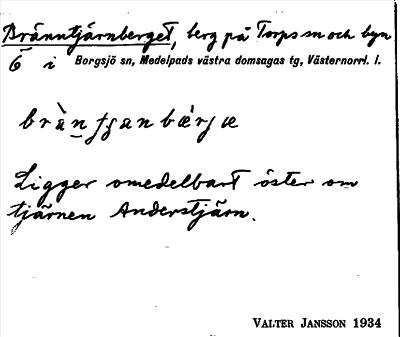 Bränntjärnberget, berg på Torps sn och byn
Ö i Borgsjö sn, Medelpads västra domsagas tg, Västernorrl. l.
Ligger omedelbart öster om
tjärnen Anderstjärn.
VALTER JANSSON 1934